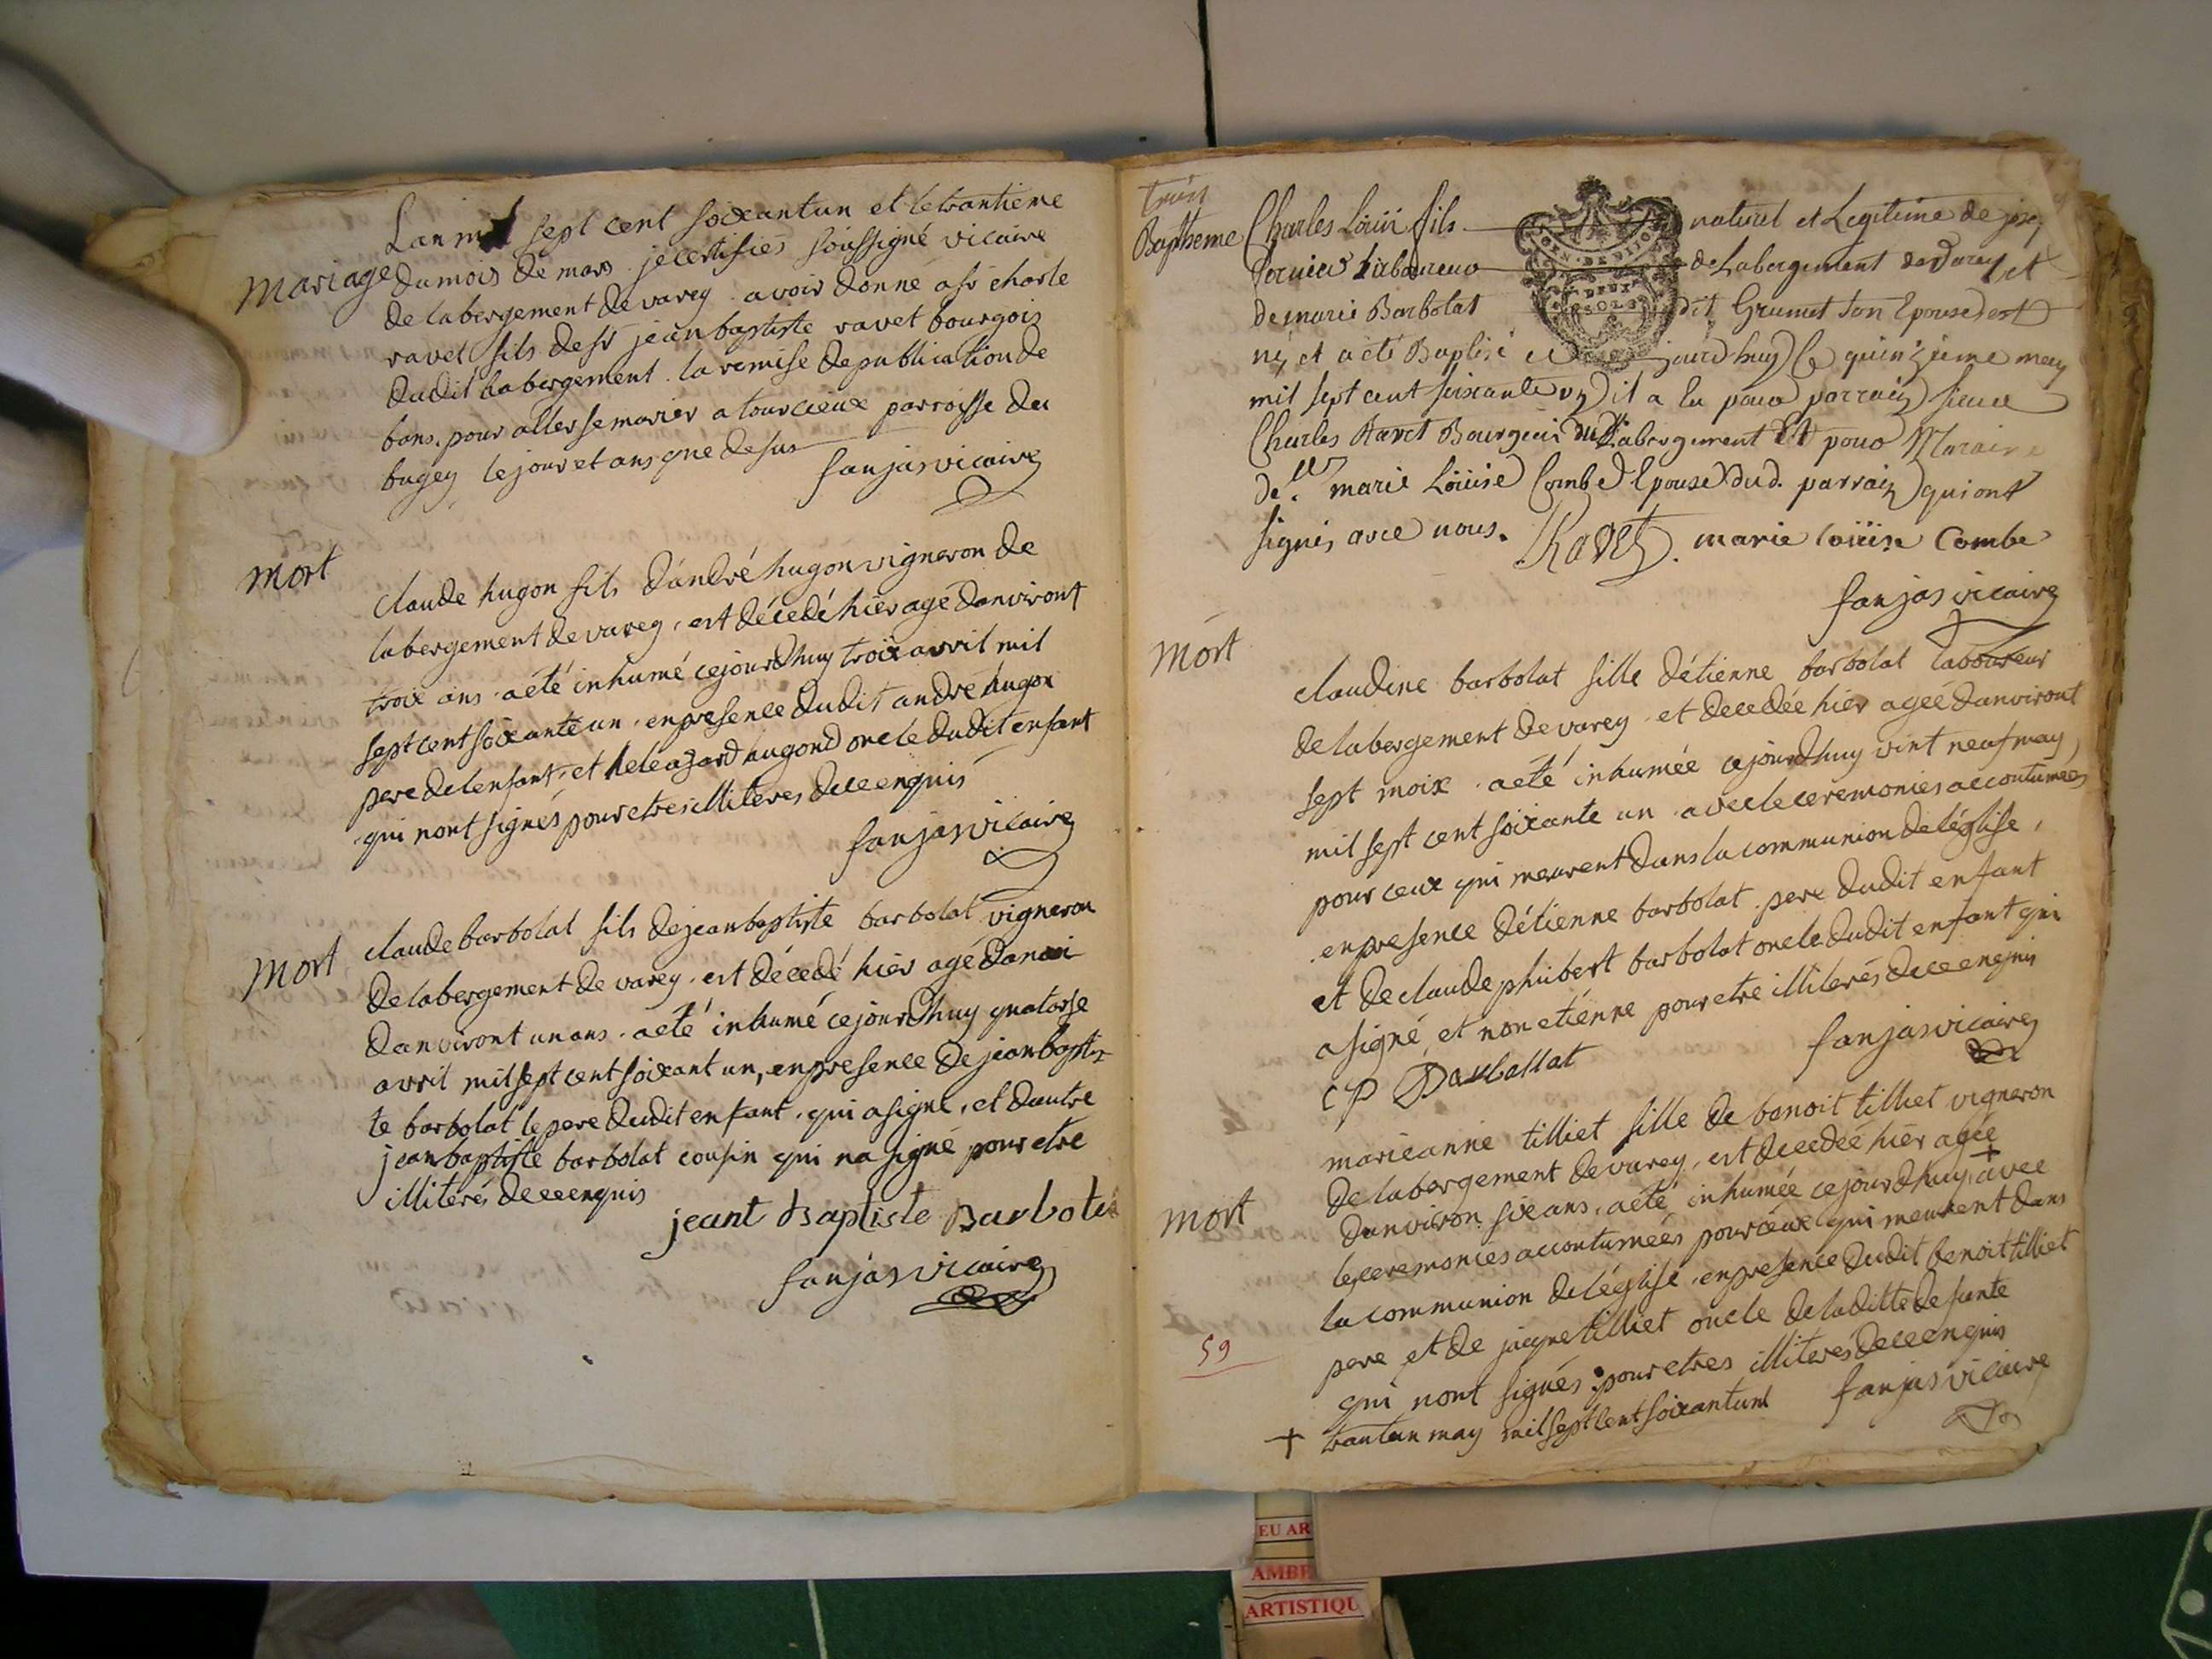 Lan mil sept cent soixantun et letrantieme
mariage
dumois de mars jecertifies soussigné vicaire
de labergement de varey avoir donné a sr charle
ravet fils de sr jeanbaptiste ravet bourgois
dudit labergement la remise depublication de
bans pour aller se marier a tourcieux parroisse du
bugey le jour et ans que desus
fanjas vicaire
mort
claude hugon fils d'andré hugon vigneron de
labergement de varey, est décedé hier agé danviront
troix ans a été inhumé cejourdhuy troix avril mil
sept cent soixante un en presence dudit andré hugon
pere del enfant, et hugond oncle dudit enfant
qui nont signés pour etres illiteres de ce enquis
fanjas vicaire
mort
claude barbolat fils dejeanbaptiste barbolat vigneron
de labergement de varey est décedé hier agé
danviront un ans a été inhumé cejourdhuy quatorse
avril mil sept cent soixant un, en presence de jean baptis
te barbolat le pere dudit enfant qui a signé, et dautre
jeanbaptiste barbolat cousin qui na signé pour etre
illiterés de ce enquis
jeant Baptiste Barbola
fanjas vicaire
Baptheme
Charles Loüi fils naturel et Legitime de
de Labergement de Varey et
de marie Barbolat dit Grumet son Epouse est
né et a eté Baptisé ce jourd'huy le quinzieme may
mil sept cent soixante un il a eu pour parrain sieur
Charles Ravet Bourgeois dud. Labergement Et pour Maraine
delle marie Loüise Combe Epouse dud. parrain qui ont
signés avec nous. Ravet. marie loüise Combe
fanjas vicaire
mort
claudine barbolat fille d'étienne barbolat laboureur
de labergement de varey et decedée hier ageé danviront
sept moix a été inhumée cejourdhuy vint neuf may
mil sept cent soixante un avec le ceremonies accoutumées
pour ceux qui meurent dans la communion de léglise,
en presence d'étienne barbolat pere dudit enfant
et de claude phibert barbolat oncle dudit enfant qui
a signé, et non etienne pour etre illiterés de ce enquis
fanjas vicaire
cp Barballat
marieanne tilliet fille de benoit tilliet vigneron
de labergement de varey, est decedeé hier ageé
mort
danviron six ans, a été inhumée cejourdhuy + avec
les ceremonies accoutumeés pour ceux qui meurent dans
la communion de léglise en presence dudit benoit tilliet
pere et de jaque tilliet oncle de laditte defunte
59
qui nont signés pour etres illiterés de ce enquis
+ trantun may mil sept cent soixantun fanjas vicaire
EU AR
AMBE
ARTISTIQU